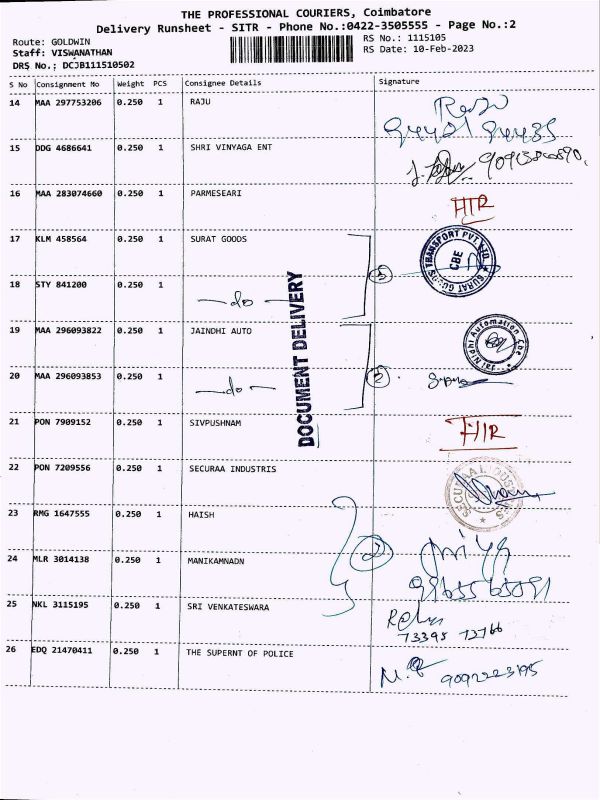 THE PROFESSIONAL COURIERS, Coimbatore
Delivery Runsheet - SITR - Phone No.:0422-3505555 - Page No.:2
Route: GOLDWIN
RS No.: 1115105
Staff: VISWANATHAN
RS Date: 10-Feb-2023
DRS No.; DCJB111510502
S No Consignment Mo Weight PCS Consignee Details Signature
14 MAA 297753206 0.250 1 RAJU
15 DDG 4686641 0.250 1 SHRI VINYAGA ENT
16 MAA 283074660 0.250 1 PARMESEARI
17 KLM 458564 0.250 1 SURAT GOODS
SURAT GOODS TRANSPORT PVT LTD.
CBE
18 STY 841200 0.250 1 —do—
DOCUMENT DELIVERY
19 MAA 296093822 0.250 1 JAINDHI AUTO
Jai Nidhi Automation Cbe
20 MAA 296093853 0.250 1 —do— 2
21 PON 7909152 0.250 1 SIVPUSHNAM
22 PON 7209556 0.250 1 SECURAA INDUSTRIS
SECURAA INDUSTRIES
23 RMG 1647555 0.250 1 HAISH
24 MLR 3014138 0.250 1 MANIKAMNADN 2
25 NKL 3115195 0.250 1 SRI VENKATESWARA
73395 72766
26 EDQ 21470411 0.250 1 THE SUPERNT OF POLICE
9092223195